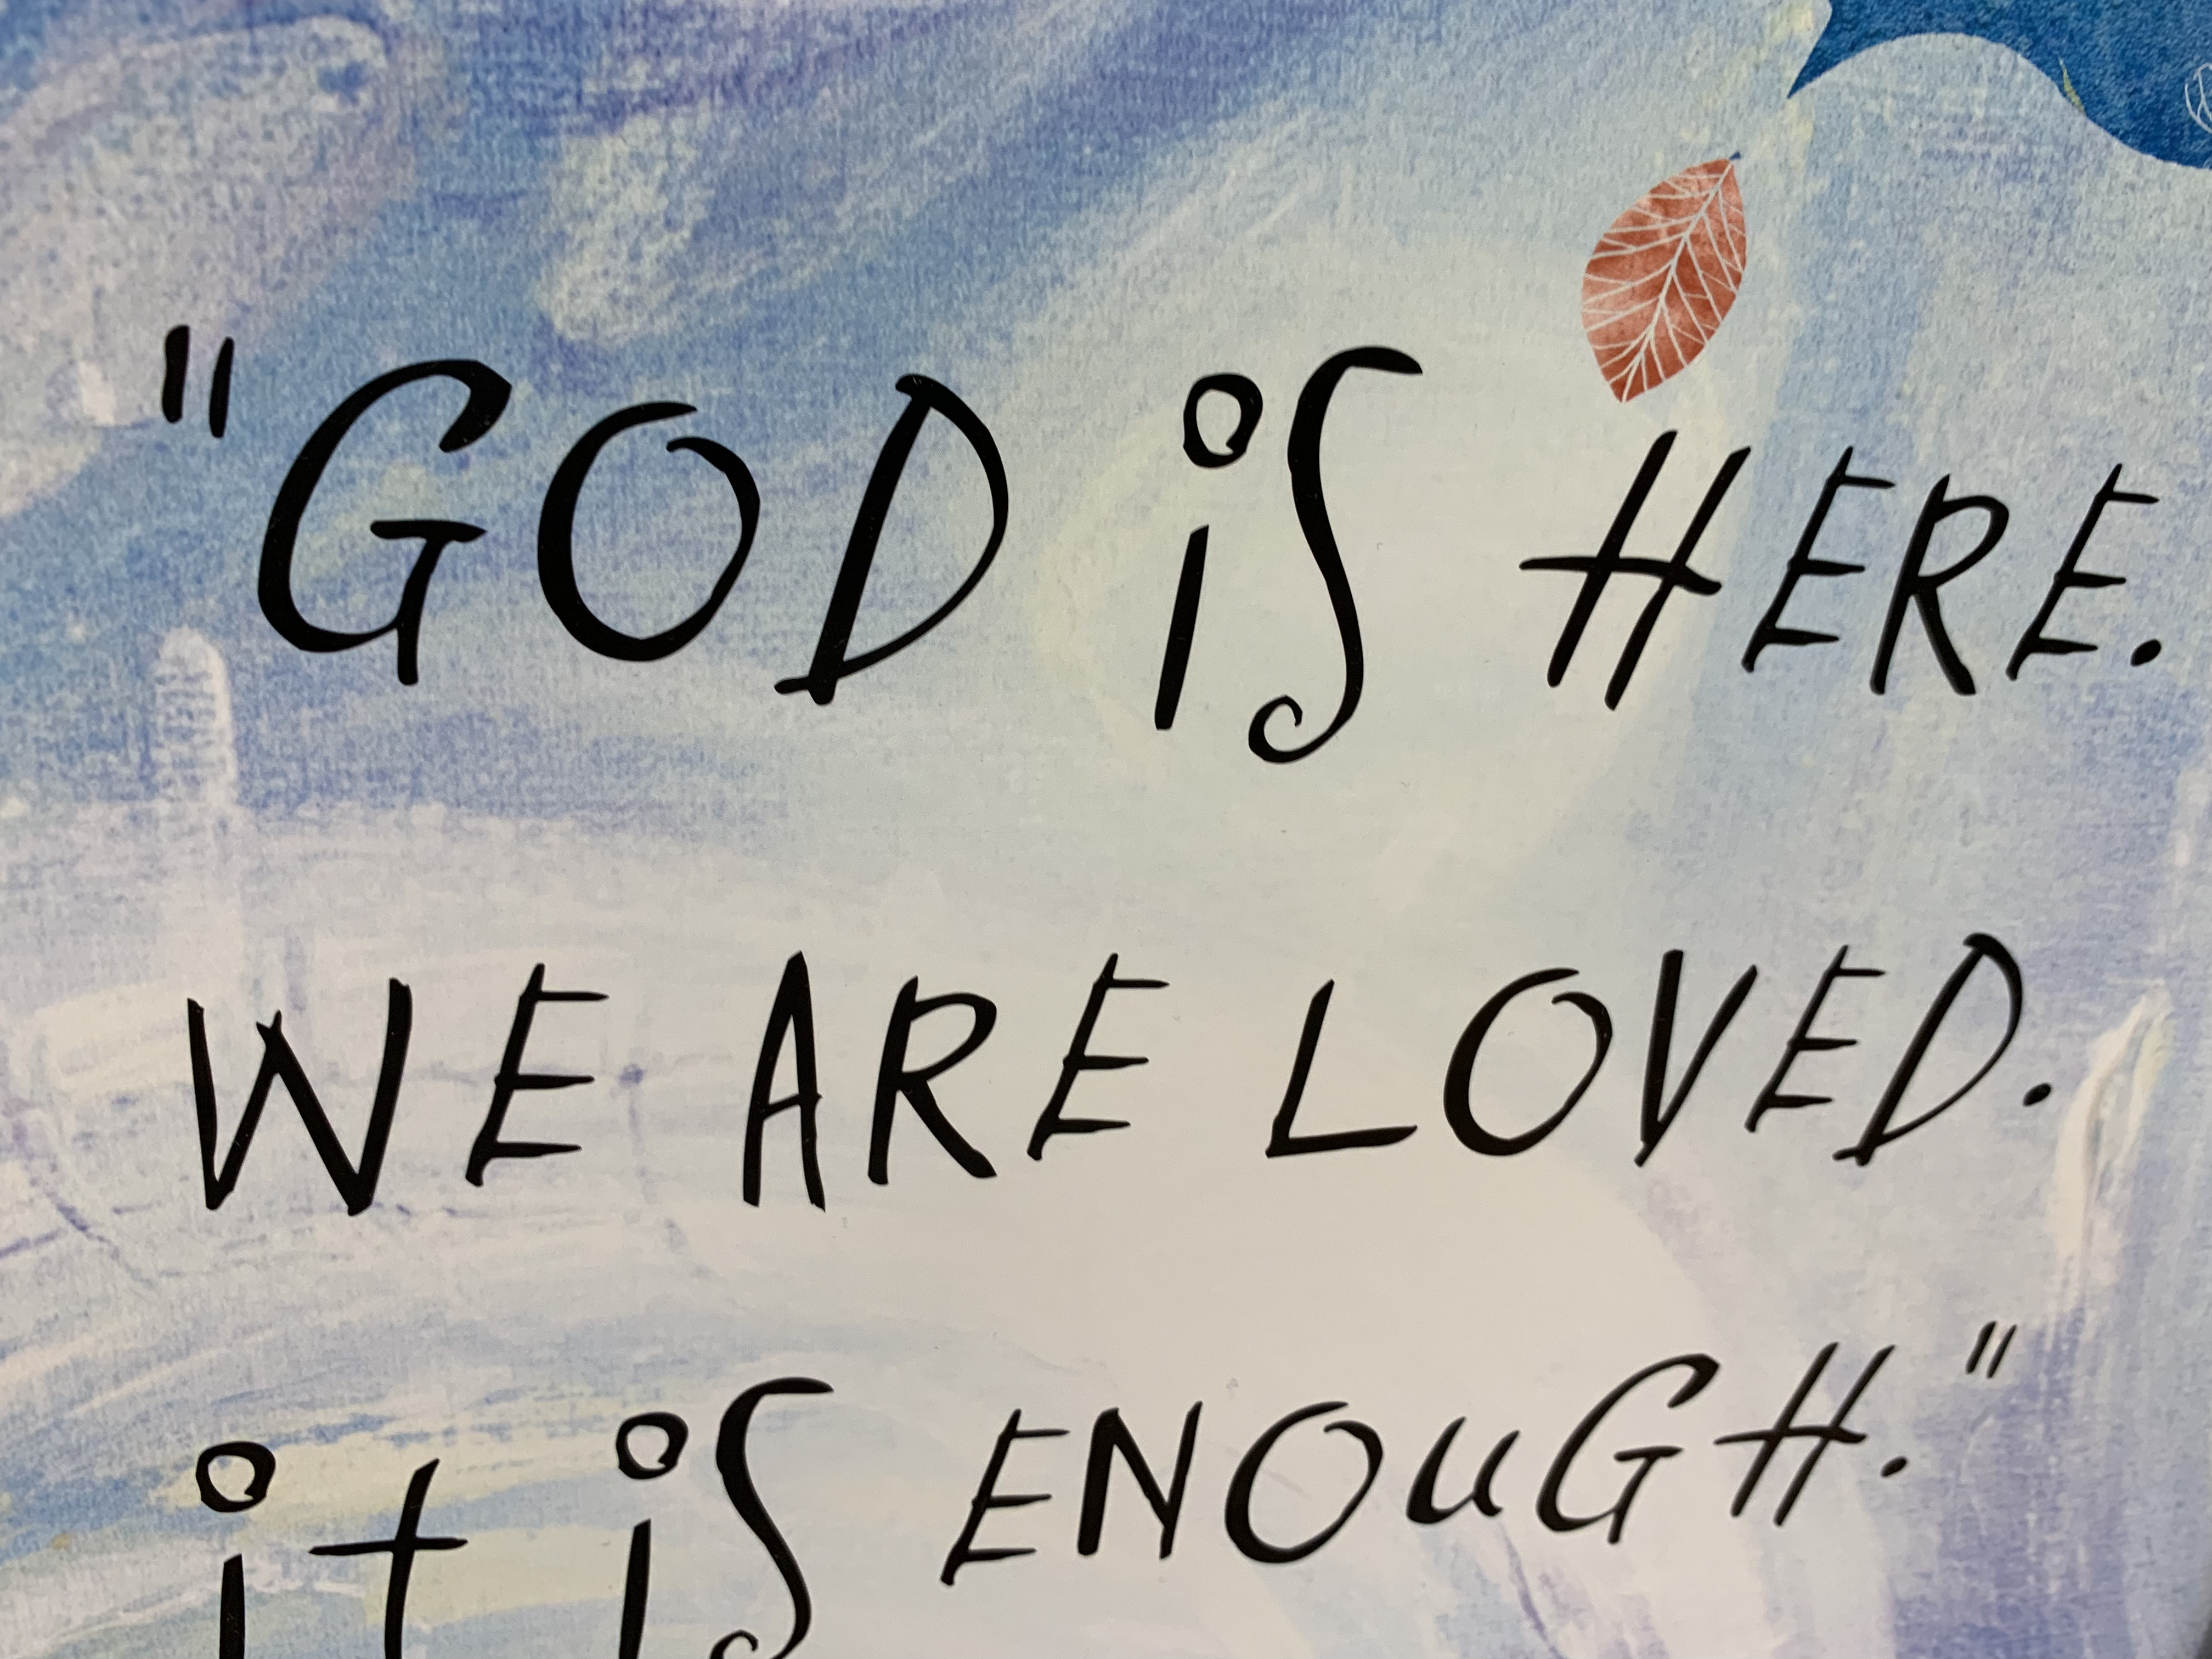 "GOD iS HERE.
WE ARE LOVED.
it iS ENOuGH."